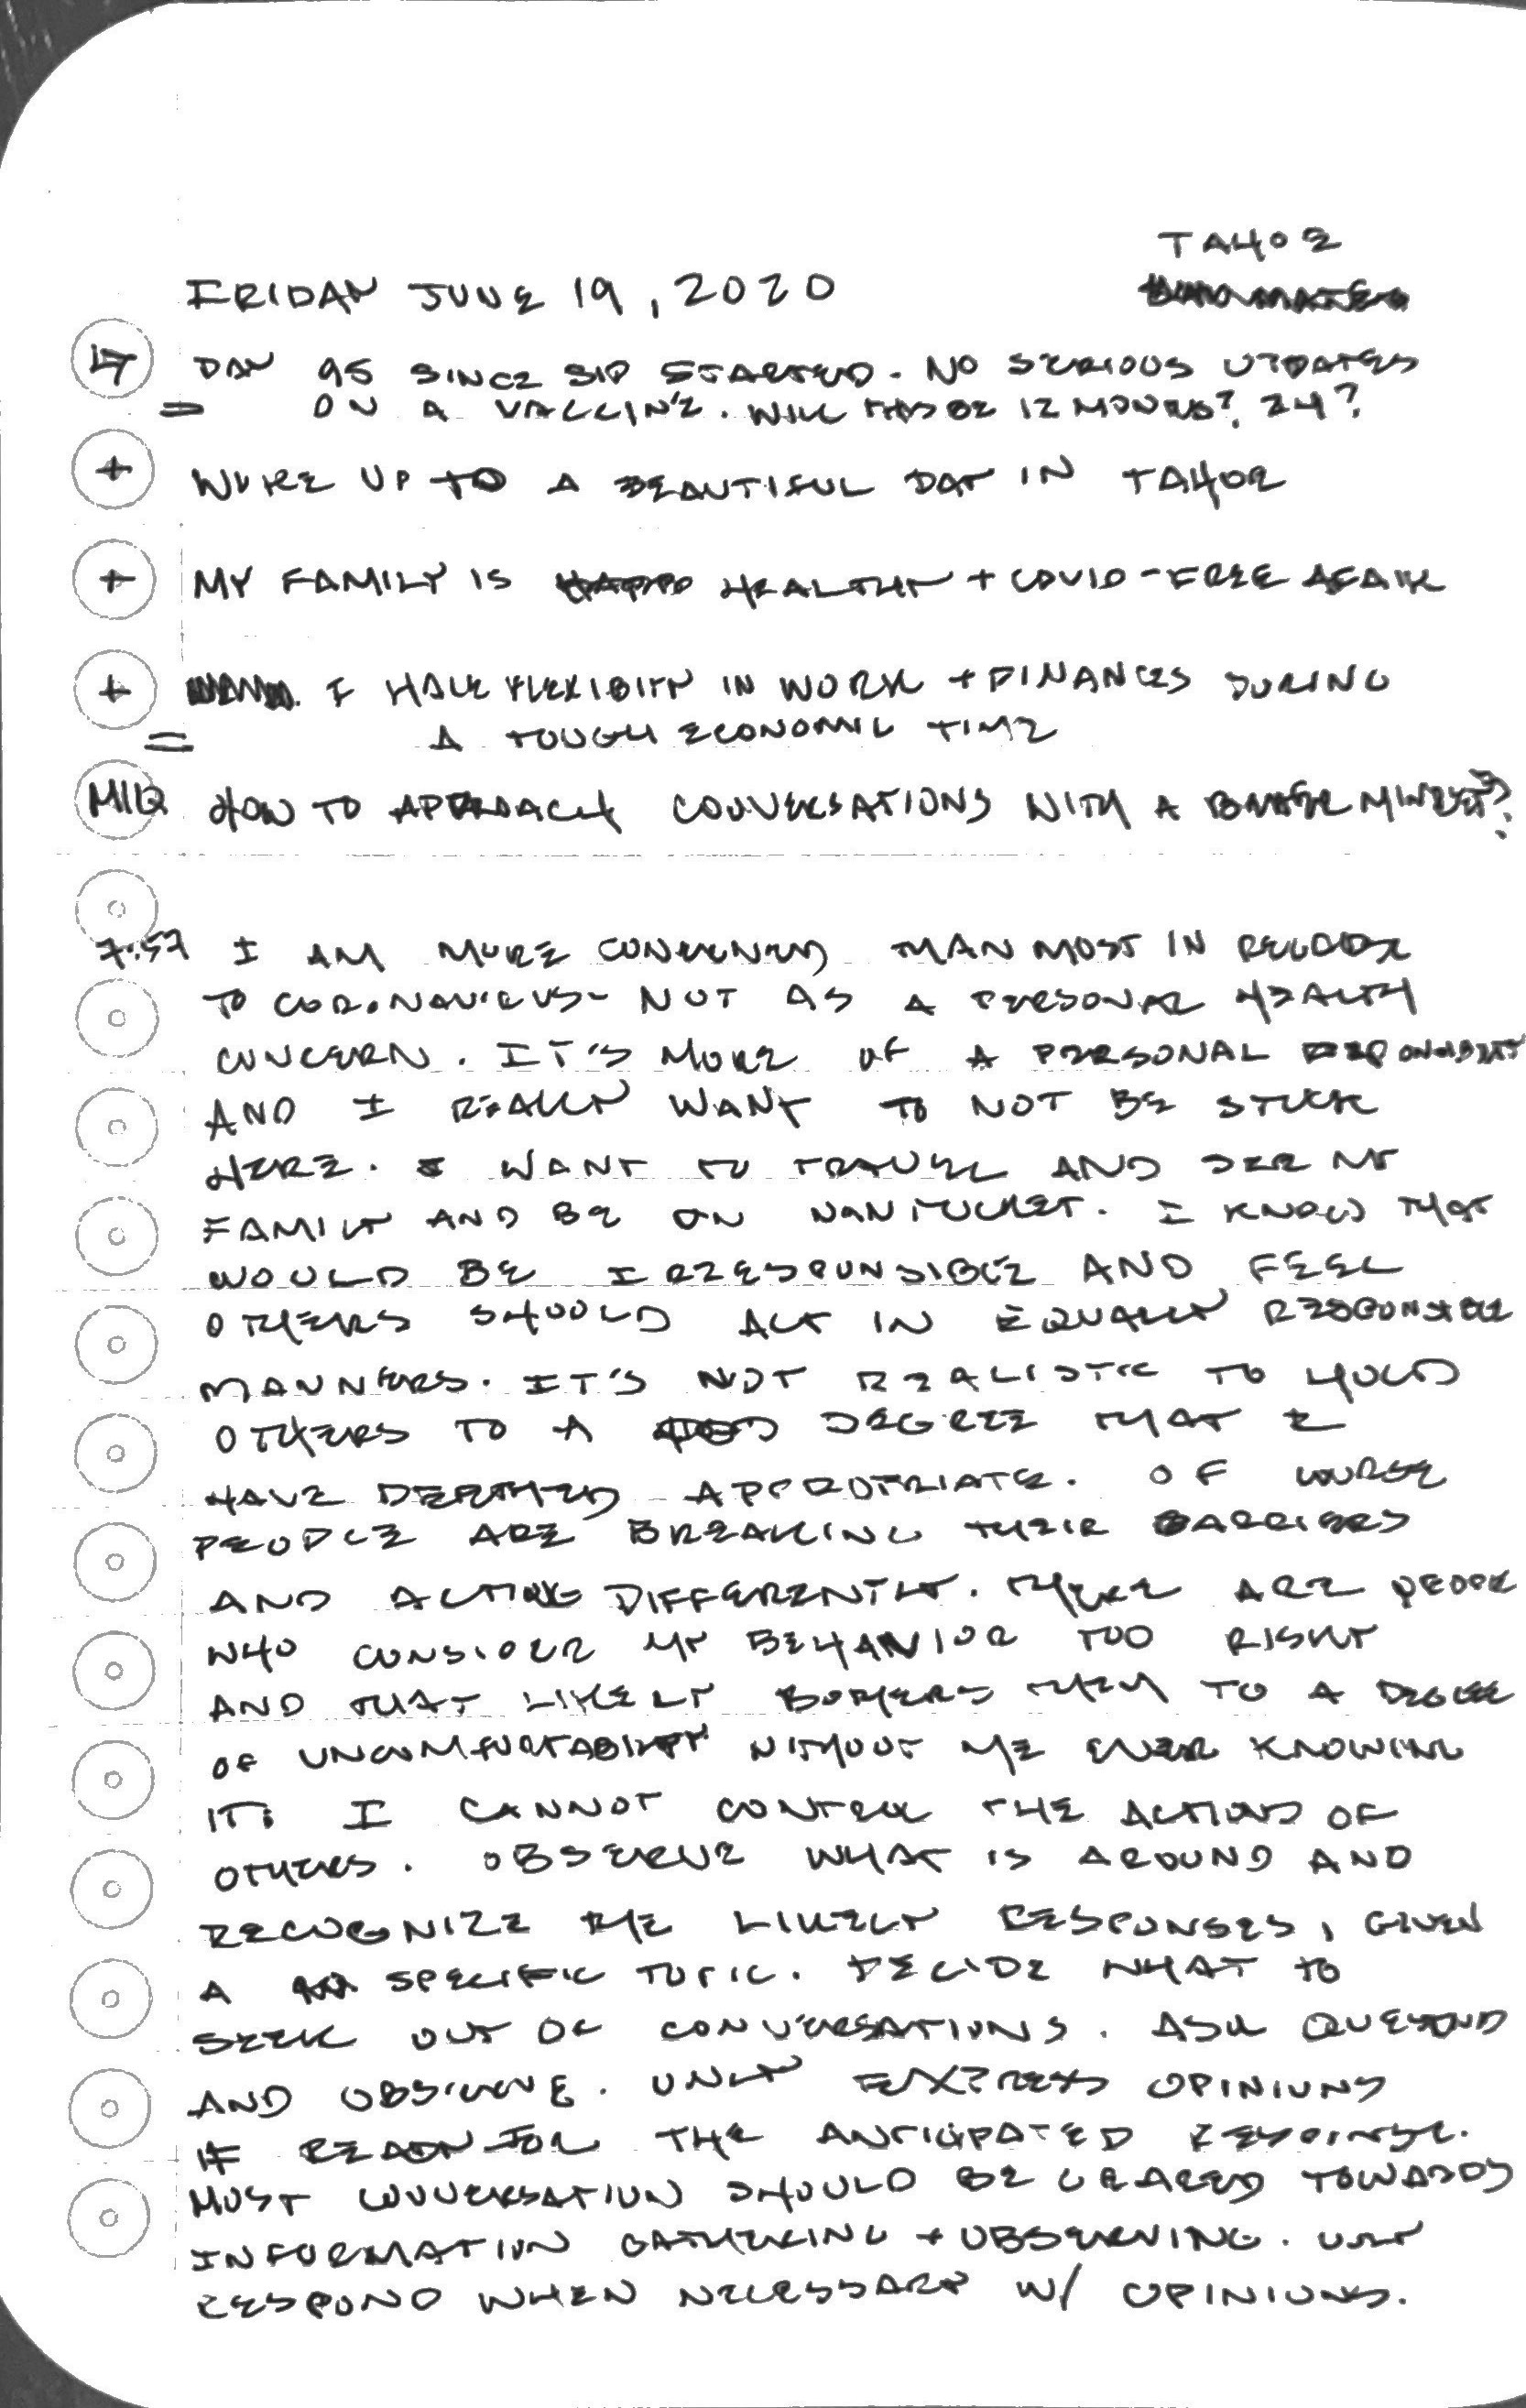 TAHOE
FRIDAY JUNE 19, 2020
DAY 95 SINCE SIP STARTED. NO SERIOUS UPDATES
= ON A VACCINE. WILL THIS BE 12 MONTHS? 24?
+ WOKE UP TO A BEAUTIFUL DAY IN TAHOE
+ MY FAMILY IS HEALTHY + COVID-FREE AFAIK
+ I HAVE FLEXIBILITY IN WORK + FINANCES DURING
= A TOUGH ECONOMIC TIME
MIQ HOW TO APPROACH CONVERSATIONS WITH A MINDSET?
7:57 I AM MORE CONCERNED THAN MOST IN
TO CORONAVIRUS - NOT AS A PERSONAL HEALTH
CONCERN. IT'S MORE OF A PERSONAL RESPONSIBILITY
AND I REALLY WANT TO NOT BE STUCK
HERE. I WANT TO TRAVEL AND SEE MY
FAMILY AND BE ON NANTUCKET. I KNOW THAT
WOULD BE IRRESPONSIBLE AND FEEL
OTHERS SHOULD ACT IN EQUALLY RESPONSIBLE
MANNERS. IT'S NOT REALISTIC TO HOLD
OTHERS TO A DEGREE THAT I
HAVE DEEMED APPROPRIATE. OF COURSE
PEOPLE ARE BREAKING THEIR BARRIERS
AND ACTING DIFFERENTLY. THERE ARE PEOPLE
WHO CONSIDER MY BEHAVIOR TOO RISKY
AND THAT LIKELY BOTHERS THEM TO A DEGREE
OF UNCOMFORTABILITY WITHOUT ME EVER KNOWING
IT. I CANNOT CONTROL THE ACTIONS OF
OTHERS. OBSERVE WHAT IS AROUND AND
RECOGNIZE THE LIKELY RESPONSES, GIVEN
A SPECIFIC TOPIC. DECIDE WHAT TO
SEEK OUT OF CONVERSATIONS. ASK QUESTIONS
AND OBSERVE. ONLY EXPRESS OPINIONS
IF READY FOR THE ANTICIPATED RESPONSE.
MOST CONVERSATION SHOULD BE GEARED TOWARDS
INFORMATION GATHERING + OBSERVING. ONLY
RESPOND WHEN NECESSARY W/ OPINIONS.